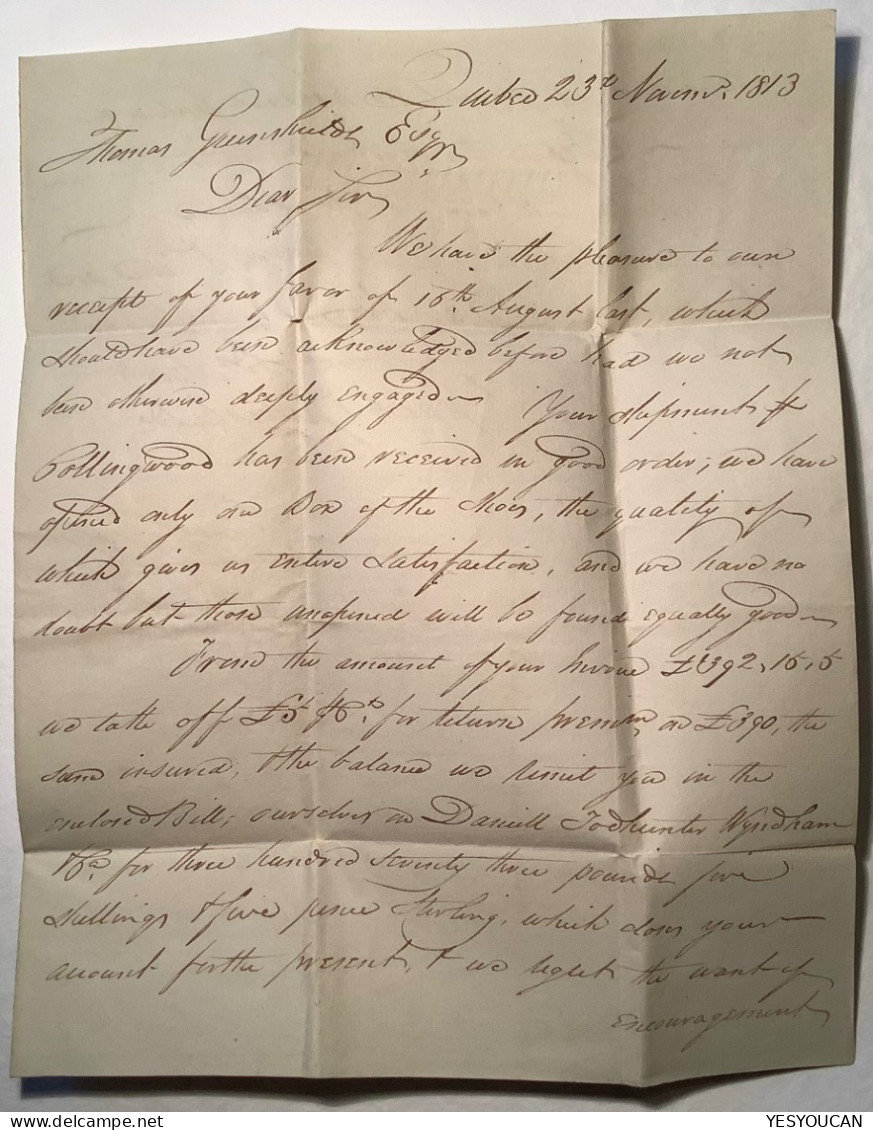 Quebec 23d Novemr. 1813
Thomas Greenshields Esqr.
Dear Sir
We have the pleasure to own
receipt of your favor of 16th. August last, which
should have been acknowledged before had we not
been otherwise deeply engaged—Your shipment
Collingwood has been received in good order; we have
opened only one Box of the Shoes, the quality of
which gives us entire satisfaction, and we have no
doubt but those unopened will be found equally good—
From the amount of your Invoice £392,15,5
we take off £5 for return premm on £390, the
sum insured, & the balance we remit you in the
enclosed Bill; ourselves on Daniell Todhunter Wyndham
&Co. for three hundred seventy three pounds five
shillings & five pence Sterling, which closes your
account for the present, & we regret the want of
encouragement
delcampe.net
YESYOUCAN